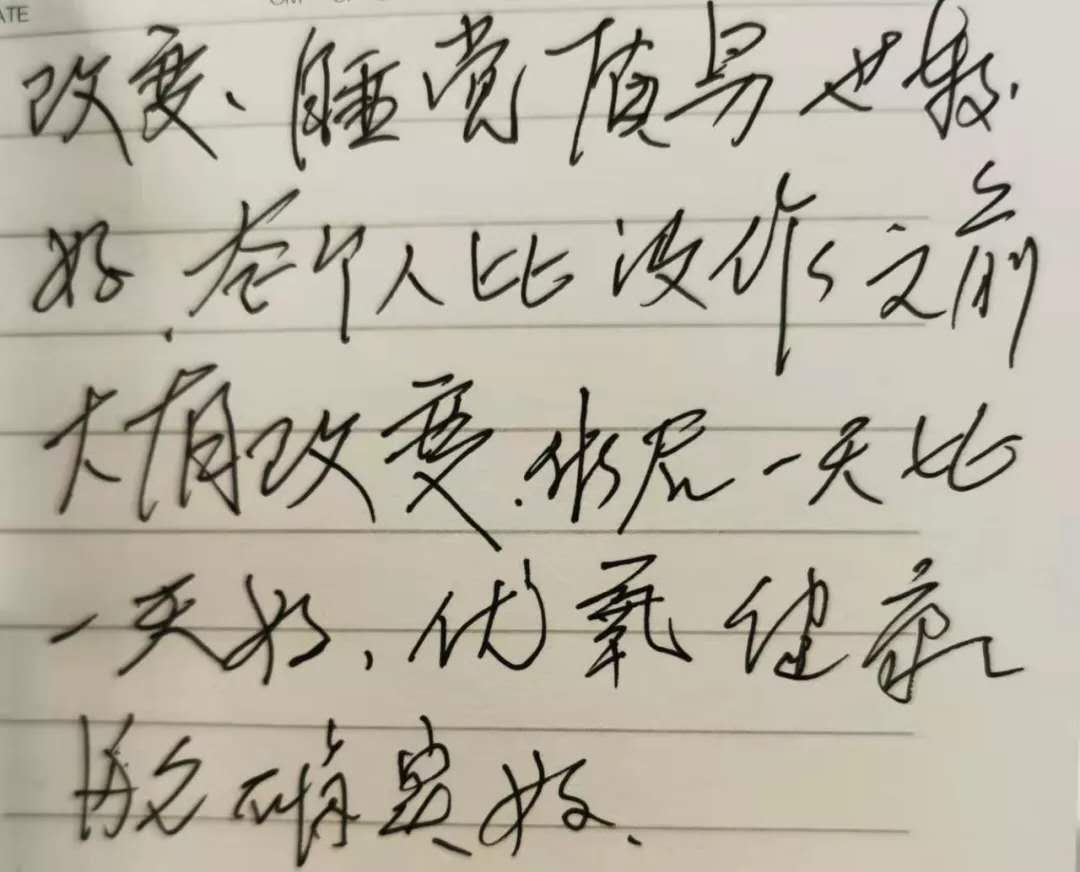 ATE
改变、睡觉质量也较
好.整个人比没作之前
大有改变.状态一天比
一天好、优氧健康
舱的确是好、